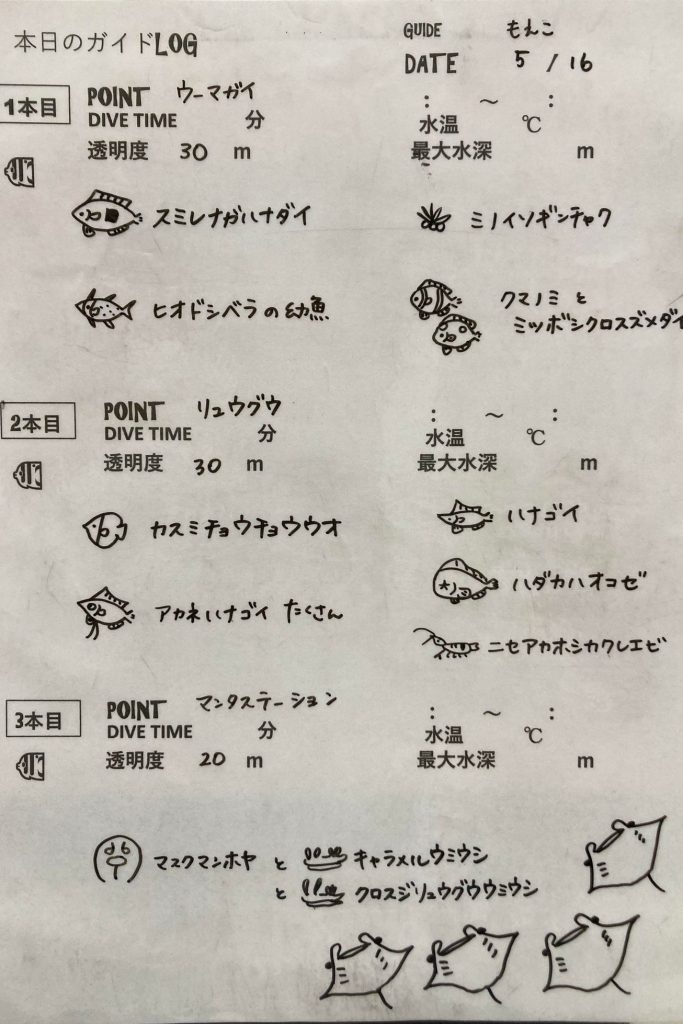 本日のガイドLOG
GUIDE もえこ
DATE 5 / 16
1本目 POINT ウーマガイ : ～ :
DIVE TIME 分 水温 ℃
透明度 30 m 最大水深 m
スミレナガハナダイ ミノイソギンチャク
ヒオドシベラの幼魚 クマノミ と
ミツボシクロスズメダイ
2本目 POINT リュウグウ : ～ :
DIVE TIME 分 水温 ℃
透明度 30 m 最大水深 m
カスミチョウチョウウオ ハナゴイ
アカネハナゴイ たくさん ハダカハオコゼ
ニセアカホシカクレエビ
3本目 POINT マンタステーション : ～ :
DIVE TIME 分 水温 ℃
透明度 20 m 最大水深 m
マスクマンホヤ と キャラメルウミウシ
と クロスジリュウグウウミウシ